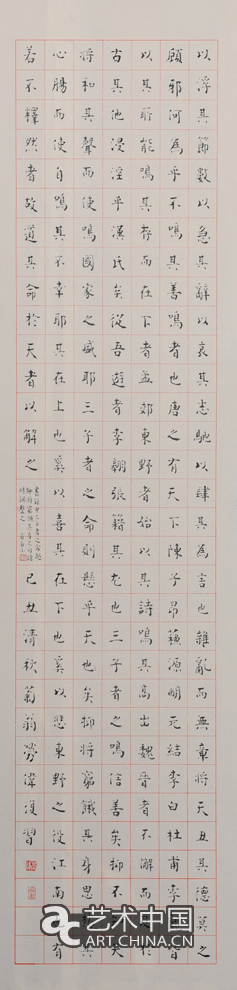 以浮其節數以急其辭以哀其志馳以肆其為言也雜亂而無章將天丑其德莫之
顧邪何為乎不鳴其善鳴者也唐之有天下陳子昂蘇源明元結李白杜甫李
以其所能鳴其存而在下者孟郊東野者始以其詩鳴其高出魏晉者不解而
古其他浸淫乎漢氏矣從吾遊者李翱張籍其尤也三子者之鳴信善矣抑不
將和其聲而使鳴國家之盛耶三子者之命則懸乎天也矣抑將窮餓其身思
心腸而使自鳴其不幸耶其在上也奚以喜其在下也奚以悲東野之役江南有
若不釋然者故道其命於天者以解之
己丑清秋菊翁勞偉復習
艺术中国
ART.CHINA.CN